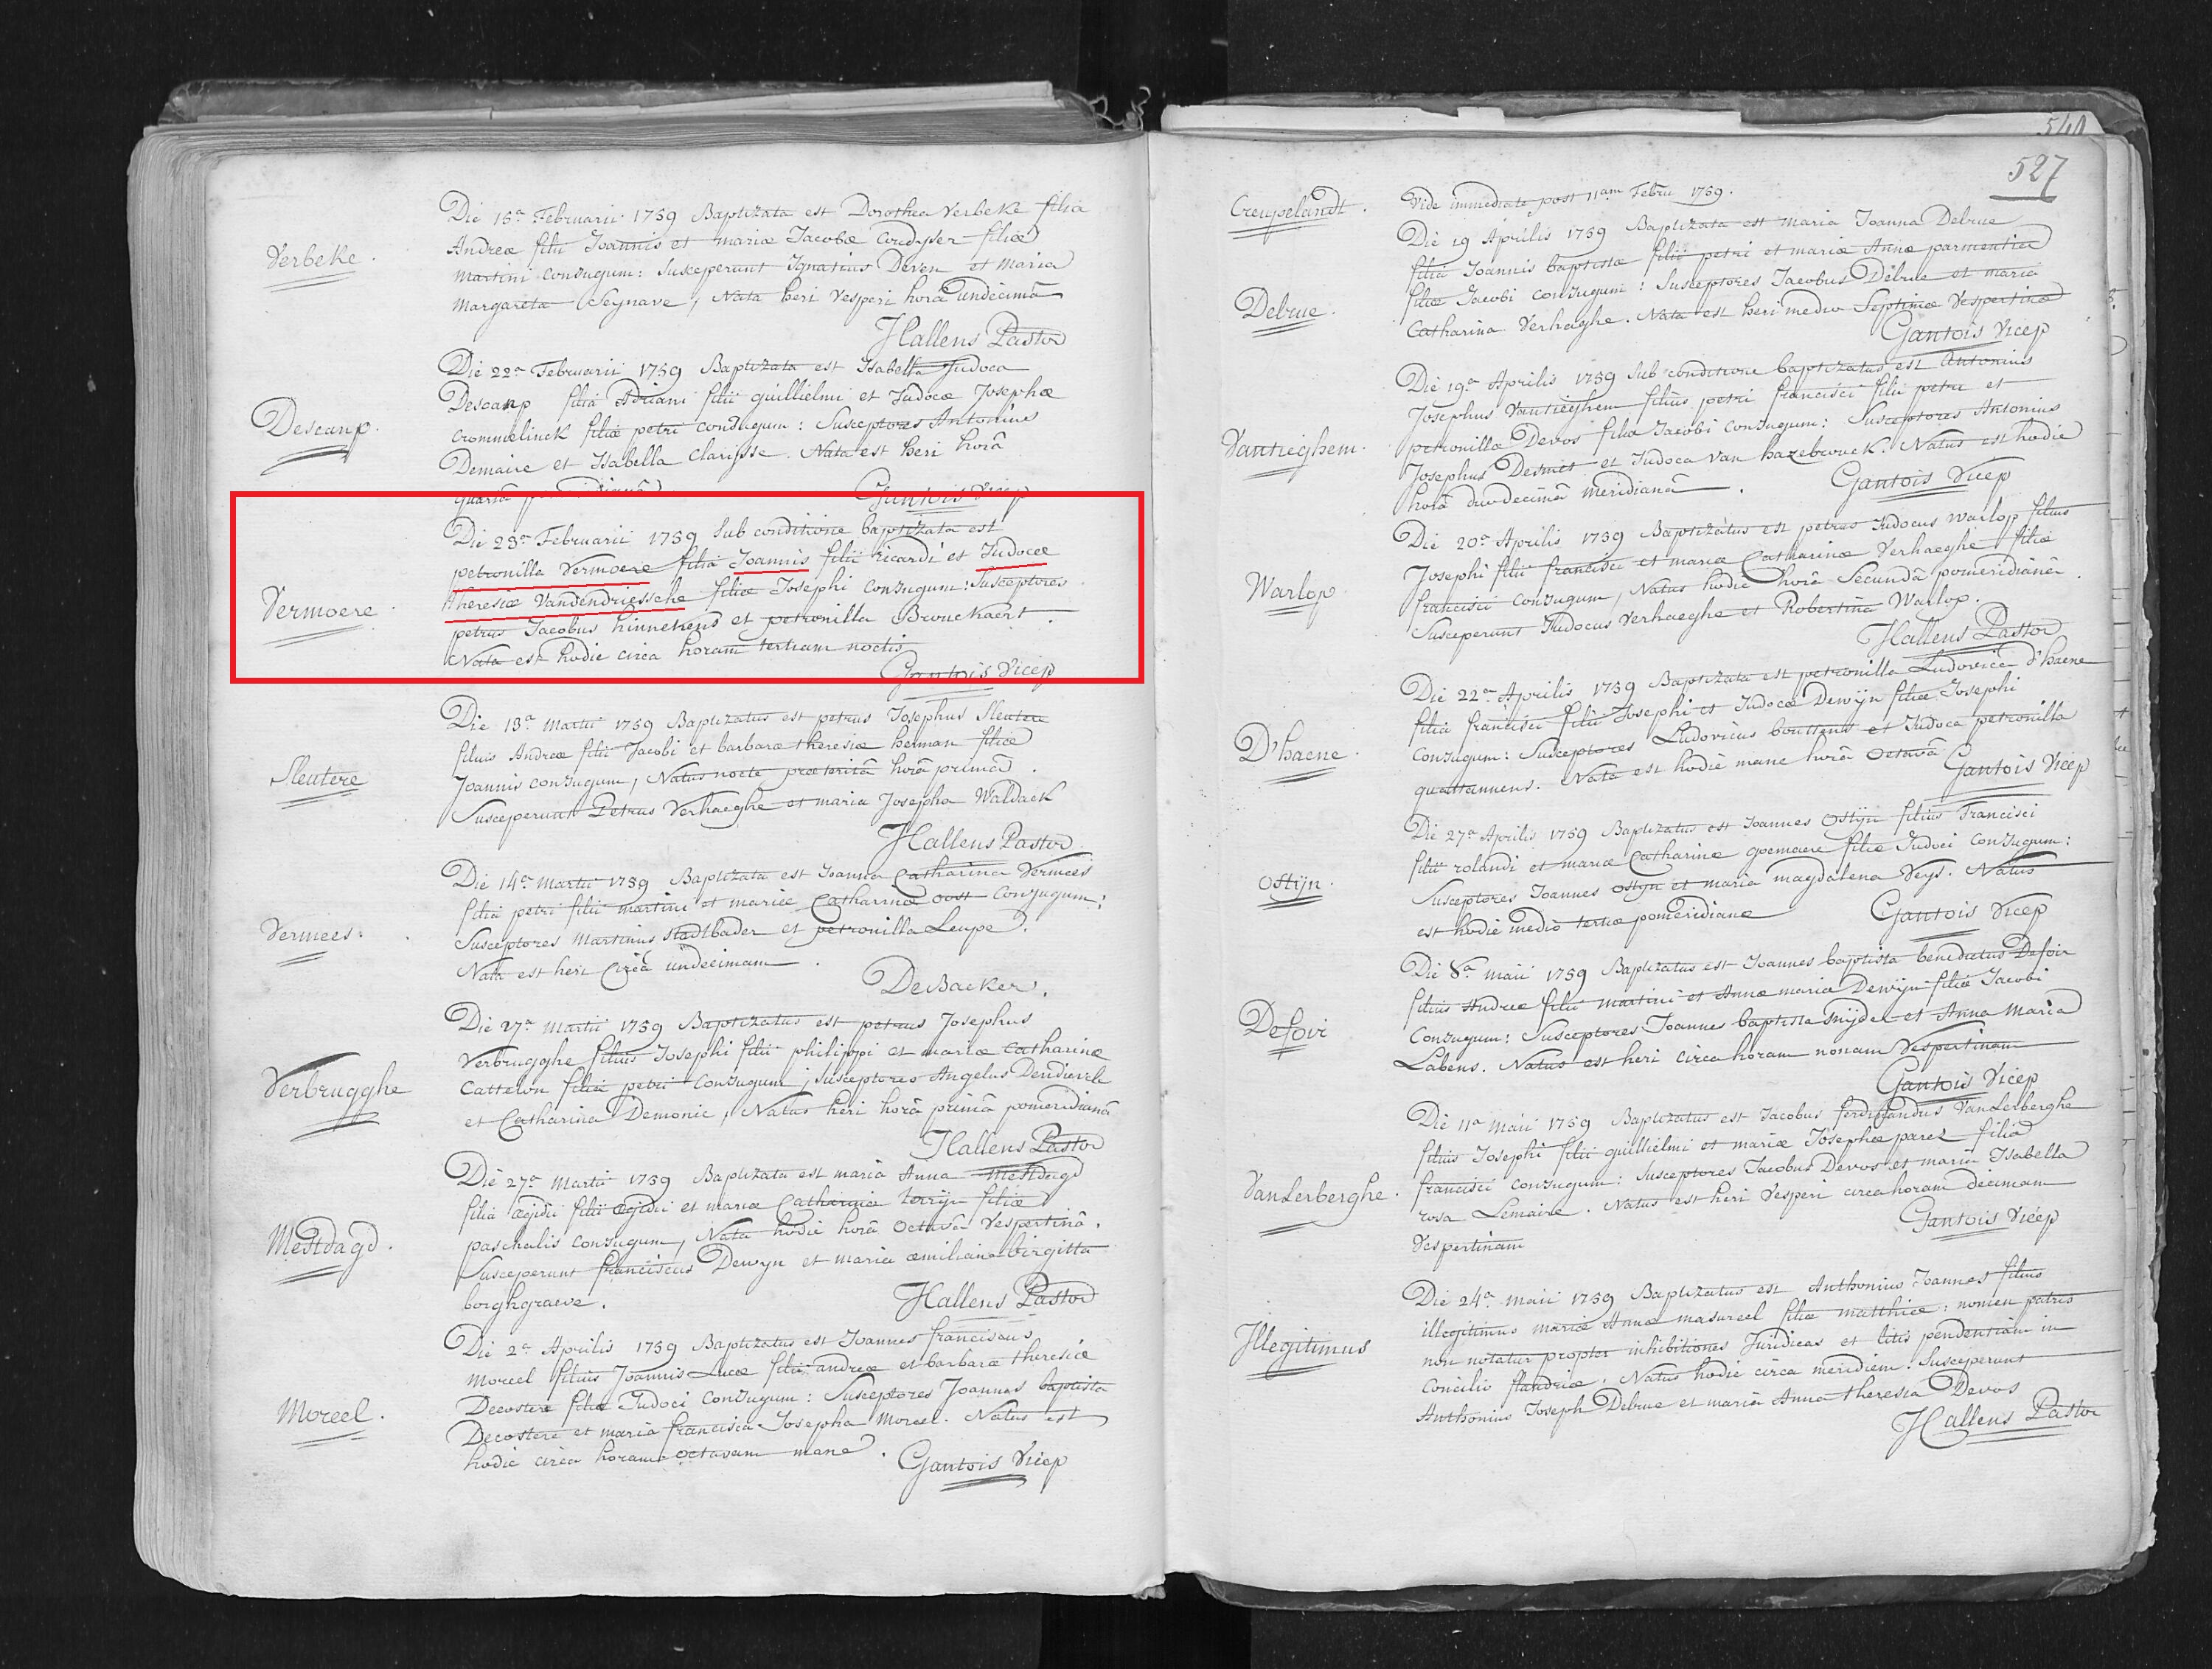 Verbeke.
Die 15a Februarii 1759 Baptizata est Dorothea Verbeke filia
Andreæ filii Joannis et mariæ Jacobæ Coudyser filiæ
martini conjugum: susceperunt Ignatius Deven et Maria
Margareta Seynave, Nata heri vesperi horâ undecimâ
Hallens Pastor
Descanp.
Die 22a Februarii 1759 Baptizata est Isabella Judoca
Descanp filia Adriani filii guillielmi et Judocæ Josephæ
Crommelinck filiæ petri conjugum: Susceptores Antonius
Demaire et Isabella Clarisse. Nata est heri horâ
quartâ
Gantois Vicep
Vermoere.
Die 23a Februarii 1759 sub conditione baptizata est
petronilla Vermoere filia Joannis filii Ricardi et Judocæ
theresiæ Vandendriessche filiæ Josephi conjugum: Susceptores
petrus Jacobus hinnekens et petronilla Brouckaert.
Nata est hodie circa horam tertiam noctis
Gantois Vicep
Sleutere
Die 13a Martii 1759 Baptizatus est petrus Josephus Sleutere
filius Andreæ filii Jacobi et barbaræ theresiæ herman filiæ
Joannis conjugum, Natus nocte præteritâ horâ primâ.
Susceperunt Petrus Verhaeghe et maria Josepha Waldack
Hallens Pastor
Vermees.
Die 14a Martii 1759 Baptizata est Joanna Catharina Vermees
filia petri filii martini et mariæ Catharinæ oost conjugum:
Susceptores martinus stadtbader et petronilla Leupe.
Nata est heri circà undecimam.
DeBacker.
Verbrugghe
Die 27a Martii 1759 Baptizatus est petrus Josephus
Verbrugghe filius Josephi filii philippi et mariæ catharinæ
Cattelon filiæ petri conjugum, susceptores Angelus Dendievele
et Catharina Demonie, Natus heri horâ primâ pomeridianâ
Hallens Pastor
Mestdagd.
Die 27a Martii 1759 Baptizata est maria Anna Mestdagd
filia ægidii filii ægidii et mariæ Catharinæ terrijn filiæ
paschalis conjugum, Nata hodie horâ octavâ vespertinâ.
Susceperunt franciscus Dewyn et maria æmiliana birgitta
borghgraeve.
Hallens Pastor
Moreel.
Die 2a Aprilis 1759 Baptizatus est Joannes franciscus
Moreel filius Joannis Lucæ filii andreæ et barbaræ theresiæ
Decostere filiæ Judoci conjugum: Susceptores Joannes baptista
Decostere et maria francisca Josepha Moreel. Natus est
hodie circa horam octavam mane.
Gantois Vicep
540
527
Creupelandt.
Vide immediate post 11am Febru 1759.
Debrue.
Die 19 Aprilis 1759 Baptizata est maria Joanna Debrue
filia Joannis baptistæ filii petri et mariæ Annæ parmentier
filiæ Jacobi conjugum: Susceptores Jacobus Debrue et maria
Catharina Verhaghe. Nata est heri medio septimæ vespertinæ
Gantois Vicep
Vantieghem.
Die 19a Aprilis 1759 sub conditione baptizatus est Antonius
Josephus Vantieghem filius petri francisci filii petri et
petronillæ Devos filiæ Jacobi conjugum: Susceptores Antonius
Josephus Desmet et Judoca van hazebrouck. Natus est hodie
horâ duodecimâ meridianâ.
Gantois Vicep
Warlop.
Die 20a Aprilis 1759 Baptizatus est petrus Judocus Warlop filius
Josephi filii francisci et mariæ Catharinæ Verhaeghe filiæ
francisci conjugum, Natus hodie horâ secundâ pomeridianâ.
Susceperunt Judocus Verhaeghe et Robertina Warlop.
Hallens Pastor
D'haene.
Die 22a Aprilis 1759 Baptizata est petronilla Ludovica d'haene
filia francisci filii Josephi et Judocæ Dewijn filiæ Josephi
conjugum: Susceptores Ludovicus bouttens et Judoca petronilla
quattannens. Nata est hodie mane horâ octavâ
Gantois Vicep
Ostijn.
Die 27a Aprilis 1759 Baptizatus est Joannes Ostijn filius Francisci
filii rolandi et mariæ Catharinæ goemaere filiæ Judoci conjugum:
Susceptores Joannes ostyn et maria magdalena Veys. Natus
est hodie medio tertiæ pomeridianæ
Gantois Vicep
Defoir
Die 8a maii 1759 Baptizatus est Joannes baptista benedictus Defoir
filius Andreæ filii martini et Annæ mariæ Dewijn filiæ Jacobi
conjugum: Susceptores Joannes baptista snijder et Anna Maria
Labens. Natus est heri circa horam nonam vespertinam
Gantois Vicep
VanLerberghe.
Die 11a maii 1759 Baptizatus est Jacobus ferdinandus VanLerberghe
filius Josephi filii guillielmi et mariæ Josephæ parez filiæ
francisci conjugum: susceptores Jacobus Devos et maria Isabella
rosa Lemaire. Natus est heri vesperi circa horam decimam
vespertinam
Gantois Vicep
Illegitimus
Die 24a maii 1759 Baptizatus est Anthonius Joannes filius
illegitimus mariæ Annæ masureel filiæ matthiæ: nomen patris
non notatur propter inhibitiones Juridicas et litis pendentiam in
Concilio flandriæ. Natus hodie circa meridiem. Susceperunt
Anthonius Joseph Debrue et maria Anna theresia Devos
Hallens Pastor